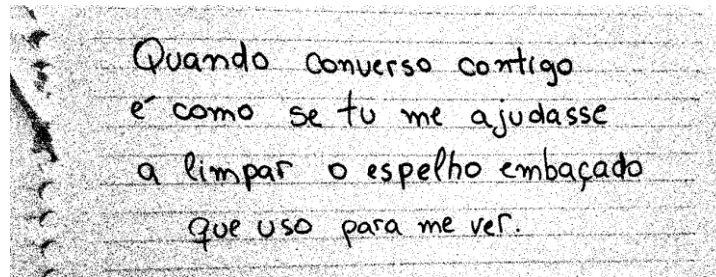 Quando converso contigo
é como se tu me ajudasse
a limpar o espelho embaçado
que uso para me ver.